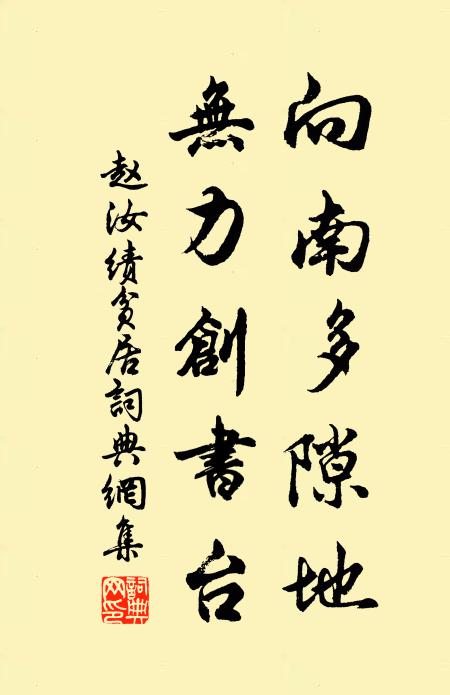 向南多隙地
無力創書台
赵汝績貧居詞典網集
詞典网印